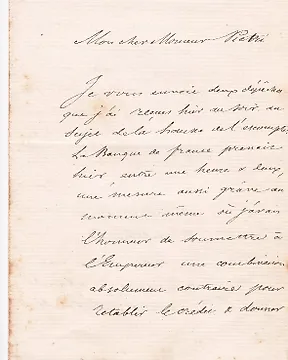 Mon cher Monsieur Pietri
Je vous envoie deux dépêches
que j'ai reçues hier au soir au
sujet de la hausse de l'escompte.
La Banque de france prenait
hier entre une heure & deux,
une mesure aussi grave au
moment même où j'avais
l'honneur de soumettre à
l'Empereur une combinaison
absolument contraire pour
rétablir le crédit & donner